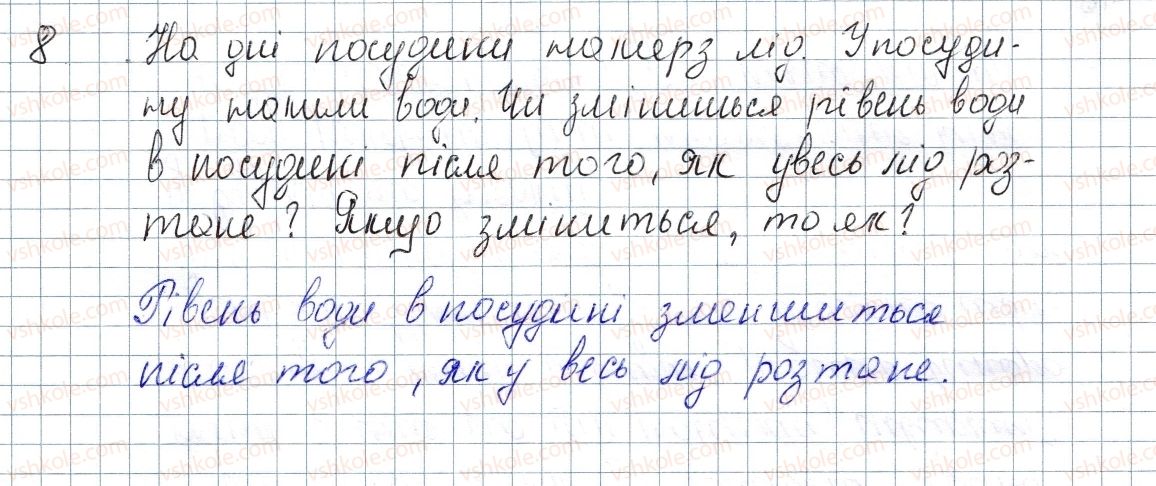 8 На дні посудини намерз лід. У посуди-
ну налили води. Чи зміниться рівень води
в посудині після того, як увесь лід роз-
тане? Якщо зміниться, то як?
Рівень води в посудині зменшиться
після того, як у весь лід розтане.